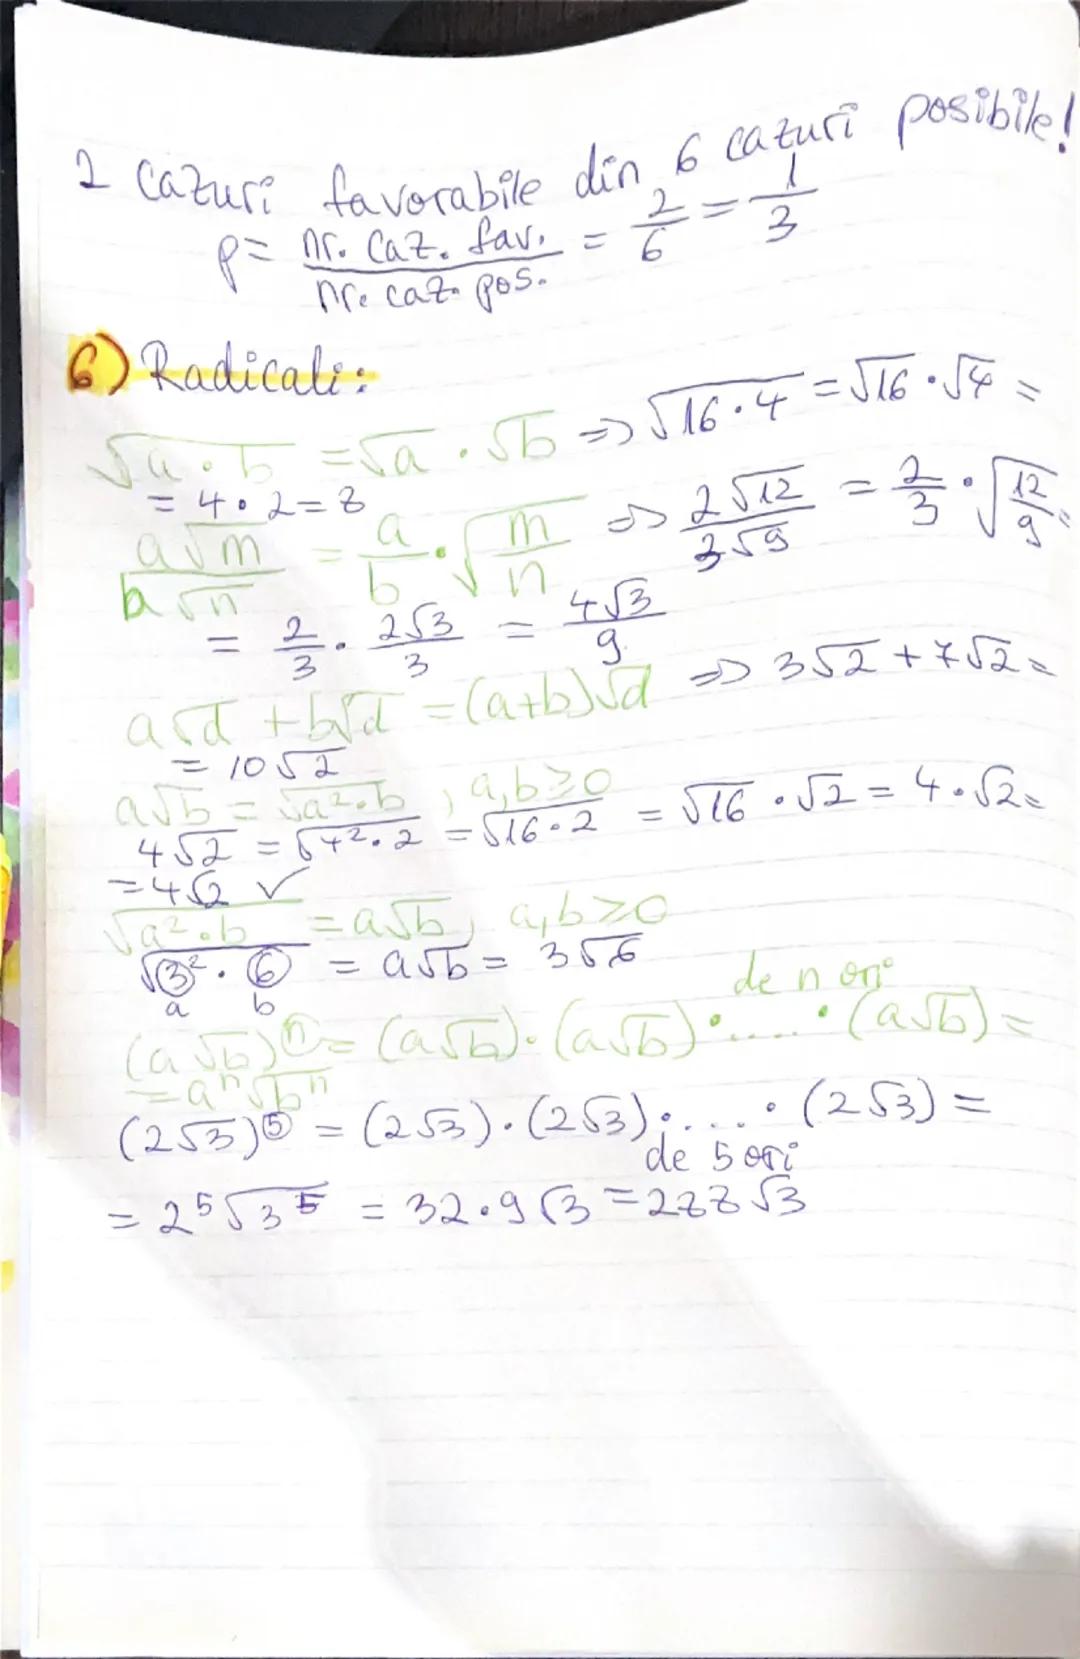 2 cazuri favorabile din 6 cazuri posibile!
p = nr. caz. fav. / nr. caz. pos. = 2/6 = 1/3
6) Radicali:
√(a·b) = √a · √b => √(16·4) = √16 · √4 =
= 4 · 2 = 8
a√m / b√n = a/b · √(m/n) => 2√12 / 3√9 = 2/3 · √(12/9) =
= 2/3 · 2√3/3 = 4√3/9
a√d + b√d = (a+b)√d => 3√2 + 7√2 =
= 10√2
a√b = √(a²·b), a,b ≥ 0
4√2 = √(4²·2) = √(16·2) = √16 · √2 = 4·√2 =
= 4√2 ✓
√(a²·b) = a√b, a,b ≥ 0
√(3²·6) = a√b = 3√6
a b
de n ori
(a√b)ⁿ = (a√b)·(a√b)·.....·(a√b) =
= aⁿ√bⁿ
(2√3)⁵ = (2√3)·(2√3)·....·(2√3) =
de 5 ori
= 2⁵√3⁵ = 32·9√3 = 288√3